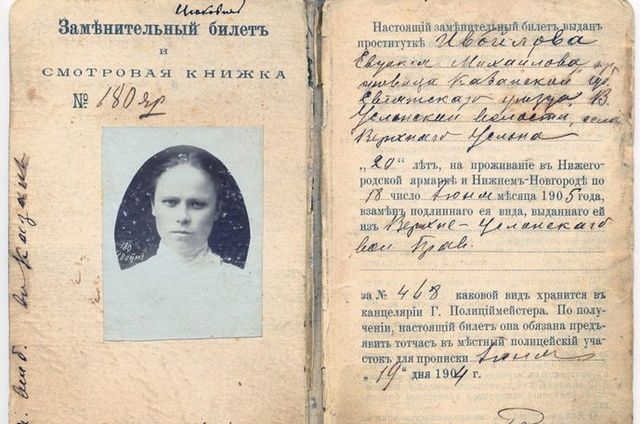 Замѣнительный билетъ
и
СМОТРОВАЯ КНИЖКА
№ 180 яр
въ Казани
Настоящій замѣнительный билетъ выданъ
проституткѣ
Михайлова
Казанской губ
уѣзда, В.
Услонской волости, села
Верхняго Услона
„20" лѣтъ, на проживаніе въ Нижего-
родской ярмаркѣ и Нижнемъ-Новгородѣ по
18 число мѣсяца 1905 года,
взамѣнъ подлиннаго ея вида, выданнаго ей
изъ Верхне-Услонскаго
вол Прав
за № 468 каковой видъ хранится въ
канцеляріи Г. Полиціймейстера. По полу-
ченіи, настоящій билетъ она обязана предъ-
явить тотчасъ въ мѣстный полицейскій уча-
стокъ для прописки
„19" дня 1904 г.